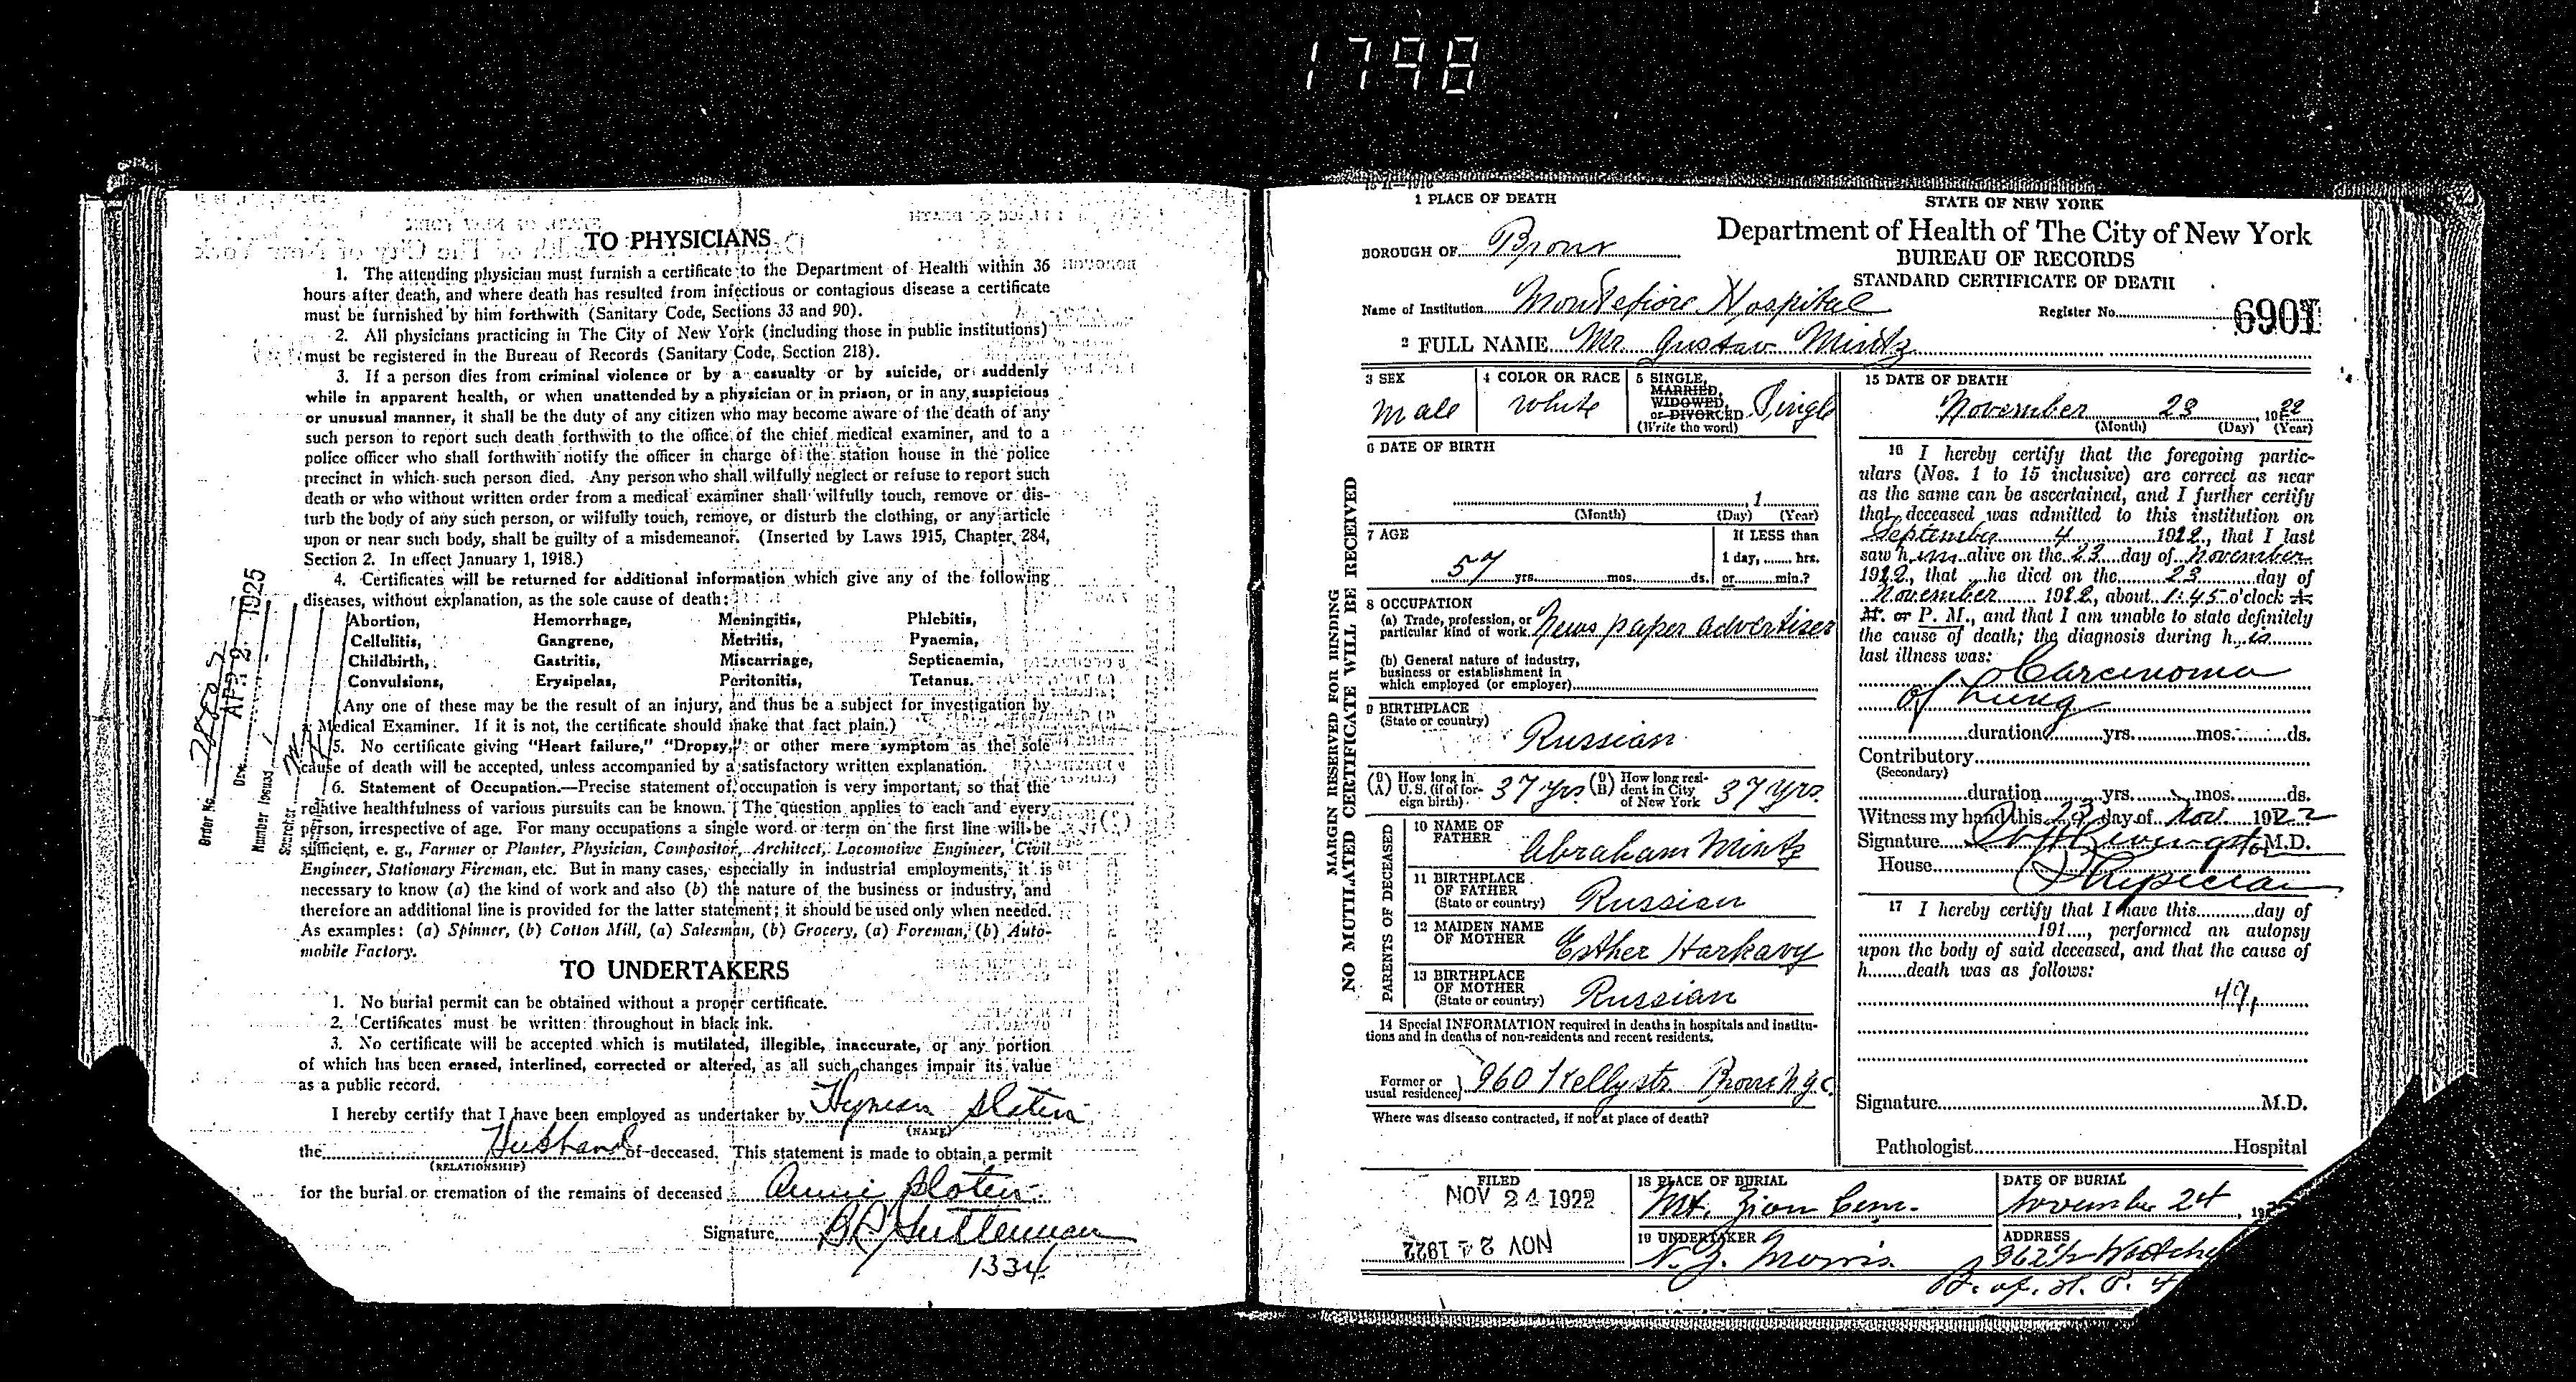 1798
TO PHYSICIANS
1. The attending physician must furnish a certificate to the Department of Health within 36
hours after death, and where death has resulted from infectious or contagious disease a certificate
must be furnished by him forthwith (Sanitary Code, Sections 33 and 90).
2. All physicians practicing in The City of New York (including those in public institutions)
must be registered in the Bureau of Records (Sanitary Code, Section 218).
3. If a person dies from criminal violence or by a casualty or by suicide, or suddenly
while in apparent health, or when unattended by a physician or in prison, or in any suspicious
or unusual manner, it shall be the duty of any citizen who may become aware of the death of any
such person to report such death forthwith to the office of the chief medical examiner, and to a
police officer who shall forthwith notify the officer in charge of the station house in the police
precinct in which such person died. Any person who shall wilfully neglect or refuse to report such
death or who without written order from a medical examiner shall wilfully touch, remove or dis-
turb the body of any such person, or wilfully touch, remove, or disturb the clothing, or any article
upon or near such body, shall be guilty of a misdemeanor. (Inserted by Laws 1915, Chapter 284,
Section 2. In effect January 1, 1918.)
4. Certificates will be returned for additional information which give any of the following
diseases, without explanation, as the sole cause of death:
Abortion, Hemorrhage, Meningitis, Phlebitis,
Cellulitis, Gangrene, Metritis, Pyaemia,
Childbirth, Gastritis, Miscarriage, Septicaemia,
Convulsions, Erysipelas, Peritonitis, Tetanus.
(Any one of these may be the result of an injury, and thus be a subject for investigation by
a Medical Examiner. If it is not, the certificate should make that fact plain.)
5. No certificate giving "Heart failure," "Dropsy," or other mere symptom as the sole
cause of death will be accepted, unless accompanied by a satisfactory written explanation.
6. Statement of Occupation.—Precise statement of occupation is very important, so that the
relative healthfulness of various pursuits can be known. The question applies to each and every
person, irrespective of age. For many occupations a single word or term on the first line will be
sufficient, e. g., Farmer or Planter, Physician, Compositor, Architect, Locomotive Engineer, Civil
Engineer, Stationary Fireman, etc. But in many cases, especially in industrial employments, it is
necessary to know (a) the kind of work and also (b) the nature of the business or industry, and
therefore an additional line is provided for the latter statement; it should be used only when needed.
As examples: (a) Spinner, (b) Cotton Mill, (a) Salesman, (b) Grocery, (a) Foreman, (b) Auto-
mobile Factory.
TO UNDERTAKERS
1. No burial permit can be obtained without a proper certificate.
2. Certificates must be written throughout in black ink.
3. No certificate will be accepted which is mutilated, illegible, inaccurate, or any portion
of which has been erased, interlined, corrected or altered, as all such changes impair its value
as a public record.
I hereby certify that I have been employed as undertaker by Hyman Slotin
(NAME)
the Husband of deceased. This statement is made to obtain a permit
(RELATIONSHIP)
for the burial or cremation of the remains of deceased Annie Slotin
Signature
1334
Order No.
Date APR 2 1925
Number Issued 1
Searcher
1 PLACE OF DEATH
BOROUGH OF Bronx
STATE OF NEW YORK
Department of Health of The City of New York
BUREAU OF RECORDS
STANDARD CERTIFICATE OF DEATH
Name of Institution Montefiore Hospital
Register No. 6901
2 FULL NAME Mr. Gustav Mintz
3 SEX
Male
4 COLOR OR RACE
White
5 SINGLE,
MARRIED,
WIDOWED,
or DIVORCED
(Write the word)
Single
6 DATE OF BIRTH
1
(Month) (Day) (Year)
7 AGE
57 yrs. mos. ds.
If LESS than
1 day, hrs.
or min.?
8 OCCUPATION
(a) Trade, profession, or
particular kind of work News paper advertiser
(b) General nature of industry,
business or establishment in
which employed (or employer)
9 BIRTHPLACE
(State or country)
Russian
(9 A) How long in
U. S. (if of for-
eign birth) 37 yrs.
(9 B) How long resi-
dent in City
of New York 37 yrs.
PARENTS OF DECEASED
10 NAME OF
FATHER
Abraham Mintz
11 BIRTHPLACE
OF FATHER
(State or country)
Russian
12 MAIDEN NAME
OF MOTHER
Esther Harkavy
13 BIRTHPLACE
OF MOTHER
(State or country)
Russian
14 Special INFORMATION required in deaths in hospitals and institu-
tions and in deaths of non-residents and recent residents.
Former or
usual residence} 960 Kelly str. Bronx N.Y.C.
Where was disease contracted, if not at place of death?
FILED
NOV 24 1922
NOV 24 1922
MARGIN RESERVED FOR BINDING
NO MUTILATED CERTIFICATE WILL BE RECEIVED
15 DATE OF DEATH
November 23, 1922
(Month) (Day) (Year)
16 I hereby certify that the foregoing partic-
ulars (Nos. 1 to 15 inclusive) are correct as near
as the same can be ascertained, and I further certify
that deceased was admitted to this institution on
September 4 1922, that I last
saw him alive on the 23 day of November
1922, that he died on the 23 day of
November 1922, about 1:45 o'clock A.
M. or P. M., and that I am unable to state definitely
the cause of death; the diagnosis during his
last illness was:
Carcinoma
of Lung
duration yrs. mos. ds.
Contributory
(Secondary)
duration yrs. mos. ds.
Witness my hand this 23 day of Nov. 1922
Signature M.D.
House Physician
17 I hereby certify that I have this day of
191 , performed an autopsy
upon the body of said deceased, and that the cause of
h death was as follows:
Signature M.D.
Pathologist Hospital
18 PLACE OF BURIAL
Mt. Zion Cem.
DATE OF BURIAL
November 24, 192
19 UNDERTAKER
Morris
ADDRESS